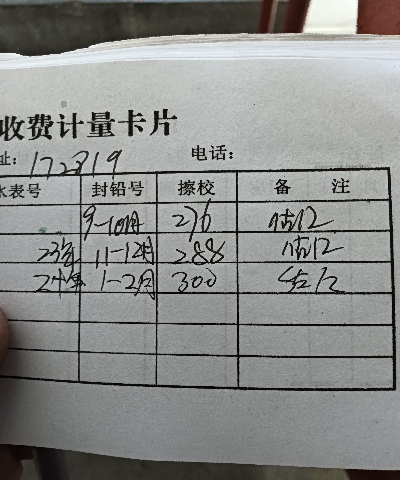 收费计量卡片
址: 172819 电话:
水表号 封铅号 擦校 备 注
9-10月 276 估12
23年 11-12月 288 估12
24年 1-2月 300 估12